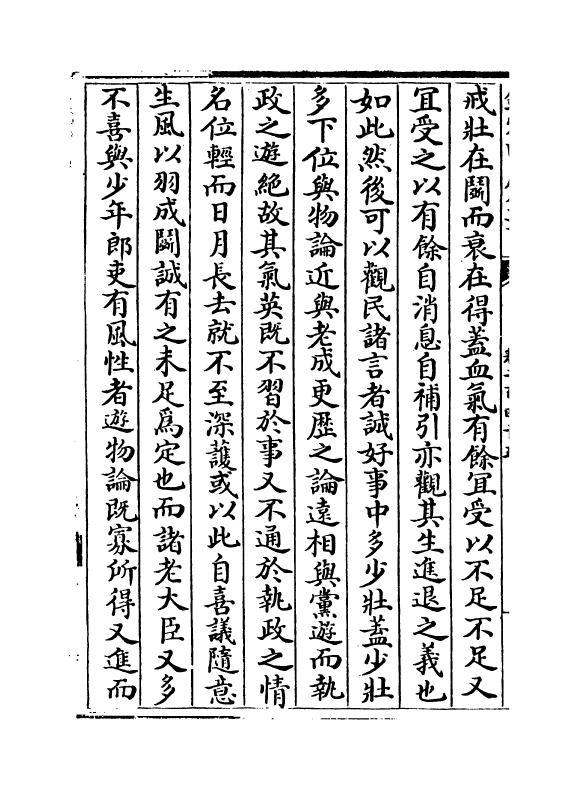 戒壯在鬬而衰在得蓋血氣有餘宜受以不足不足又
宜受之以有餘自消息自補引亦觀其生進退之義也
如此然後可以觀民諸言者誠好事中多少壯蓋少壯
多下位與物論近與老成更歷之論遠相與黨遊而執
政之遊絶故其氣英既不習於事又不通於執政之情
名位輕而日月長去就不至深護或以此自喜議隨意
生風以羽成鬬誠有之未足爲定也而諸老大臣又多
不喜與少年郎吏有風性者遊物論既寡所得又進而